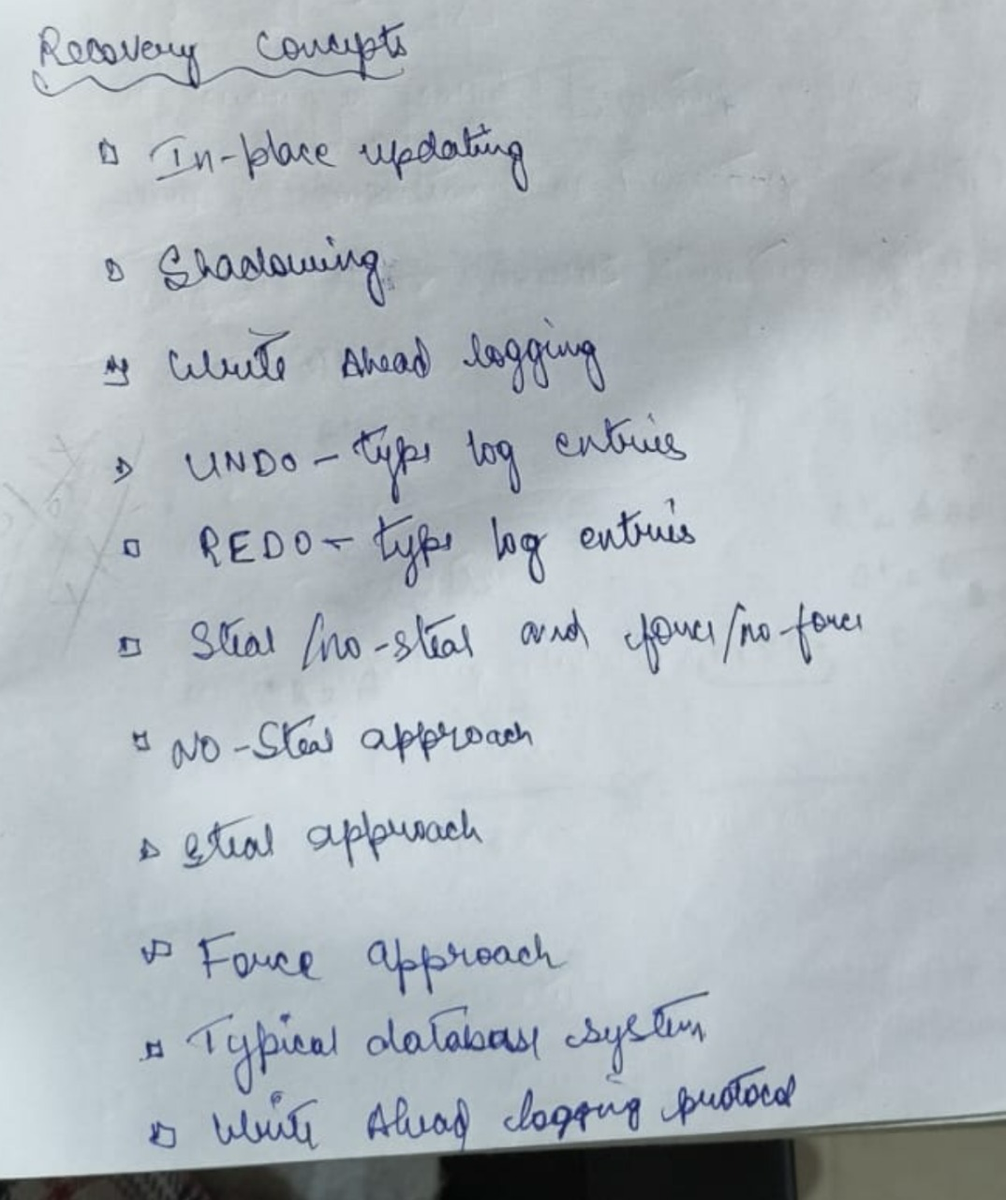 Recovery Concepts
In-place updating
Shadowing
Write Ahead logging
UNDO - type log entries
REDO - type log entries
Steal /no-steal and force/no-force
NO-Steal approach
Steal approach
Force approach
Typical database system
Write Ahead logging protocol